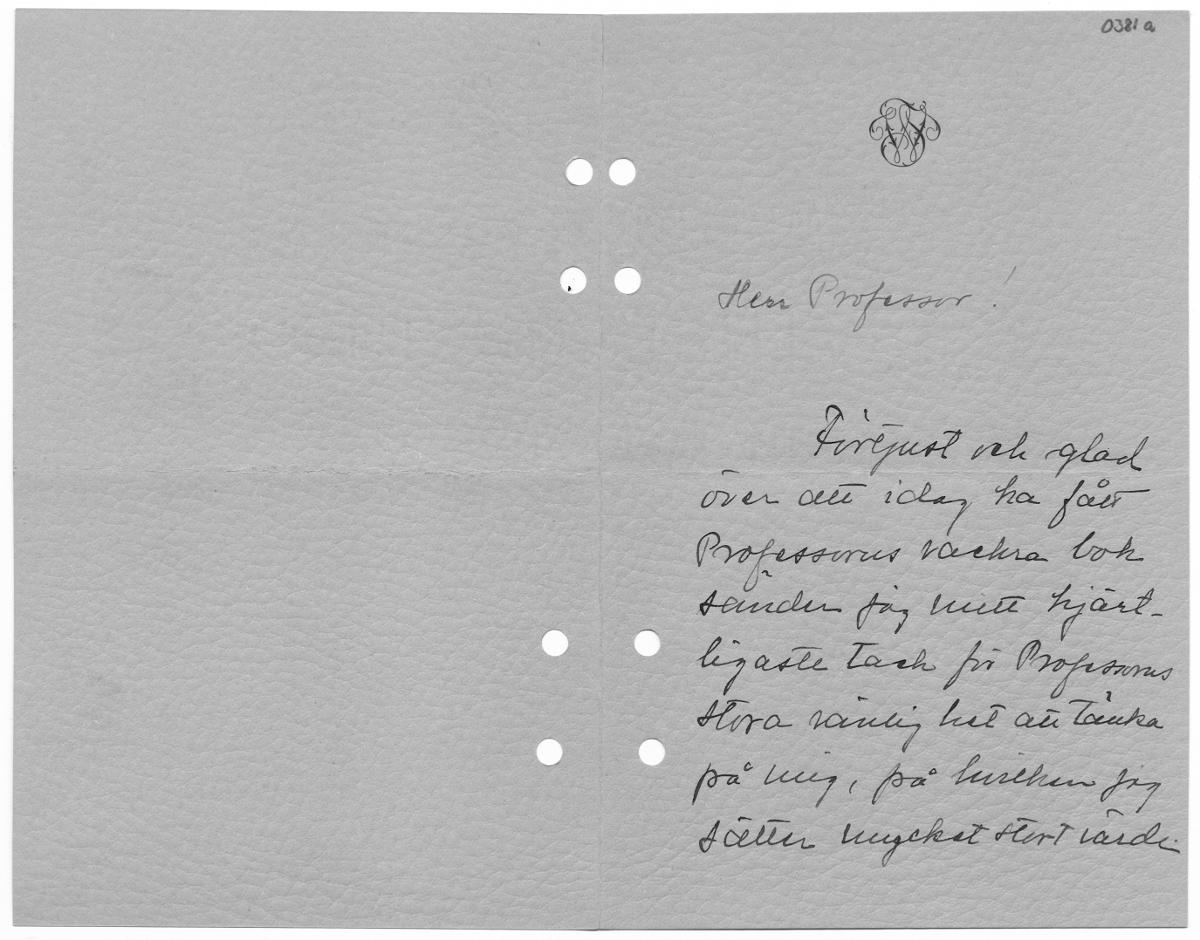 0381 a
Herr Professor!
Förtjust och glad
över att idag ha fått
Professorns vackra bok
sänder jag mitt hjärt-
ligaste tack för Professorns
stora vänlighet att tänka
på mig, på hvilken jag
sätter mycket stort värde